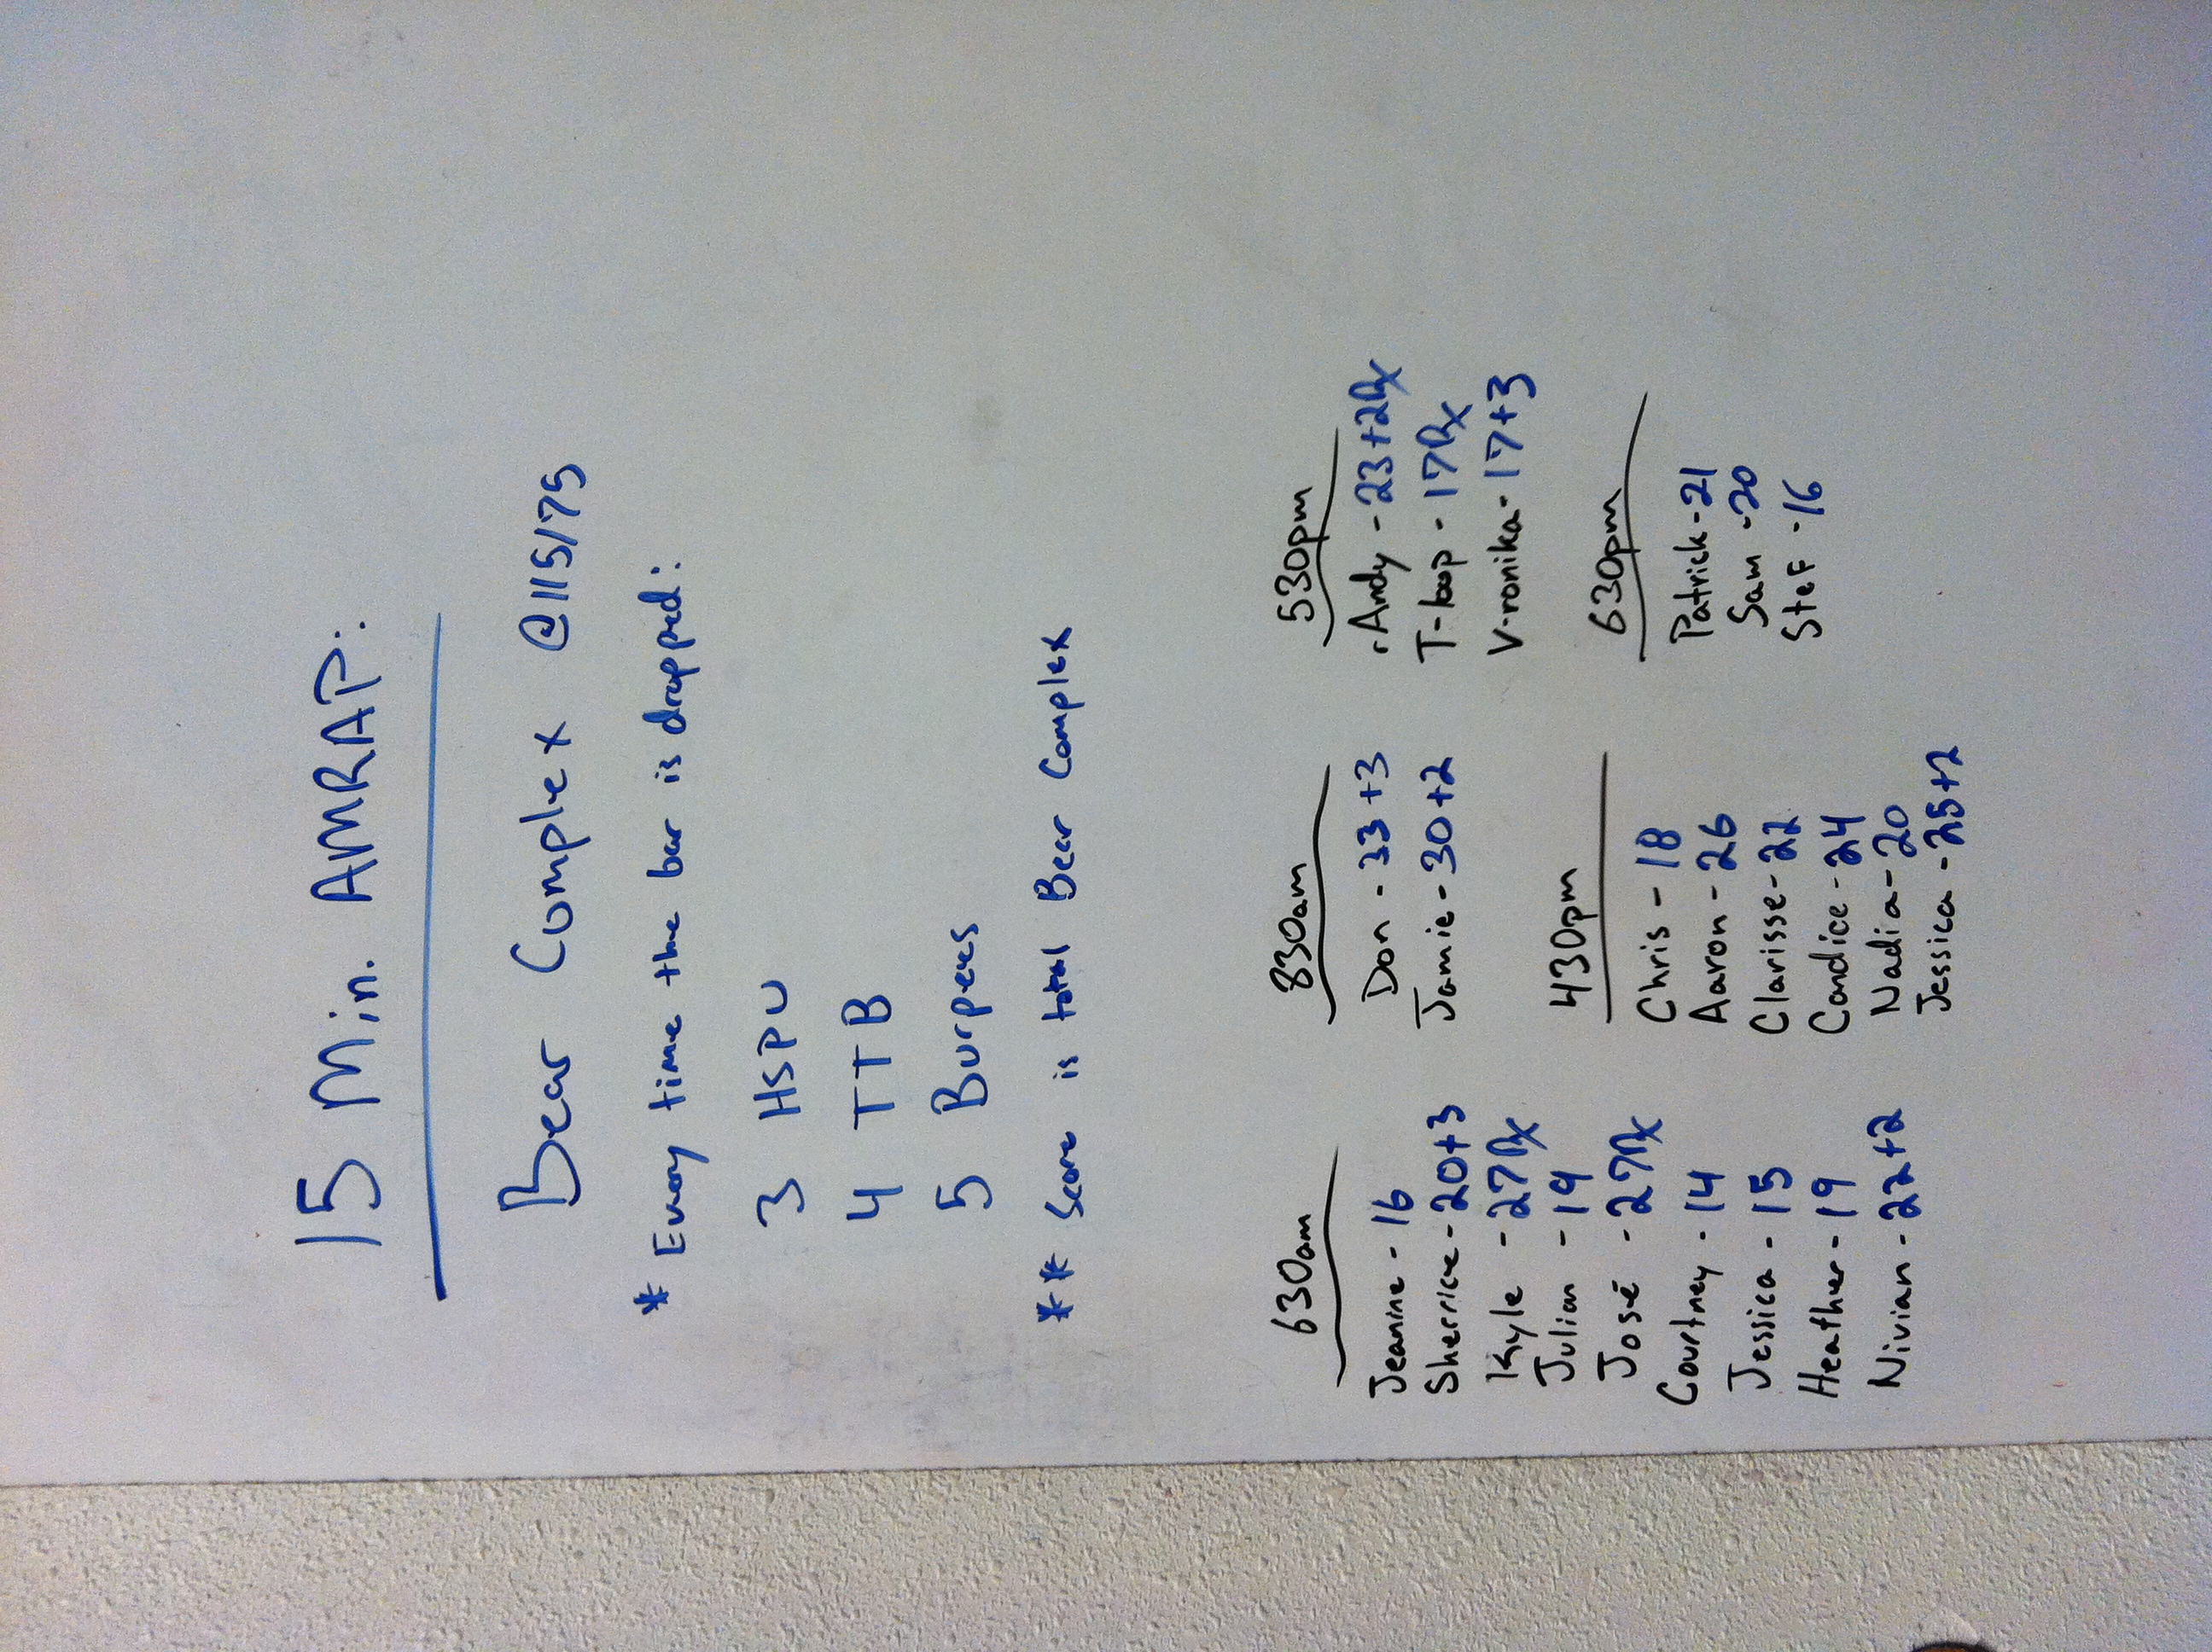 15 Min. AMRAP:
Bear Complex @115/75
* Every time the bar is dropped:
3 HSPU
4 TTB
5 Burpees
** Score is total Bear Complex
630am
Jeanine - 16
Sherrice - 20+3
Kyle - 27Rx
Julian - 19
José - 27Rx
Courtney - 14
Jessica - 15
Heather - 19
Nivian - 22+2
830am
Don - 33+3
Jamie - 30+2
430pm
Chris - 18
Aaron - 26
Clarisse - 22
Candice - 24
Nadia - 20
Jessica - 25+2
530pm
Andy - 23+2Rx
T-loop - 17Rx
V-ronika - 17+3
630pm
Patrick - 21
Sam - 20
Stef - 16